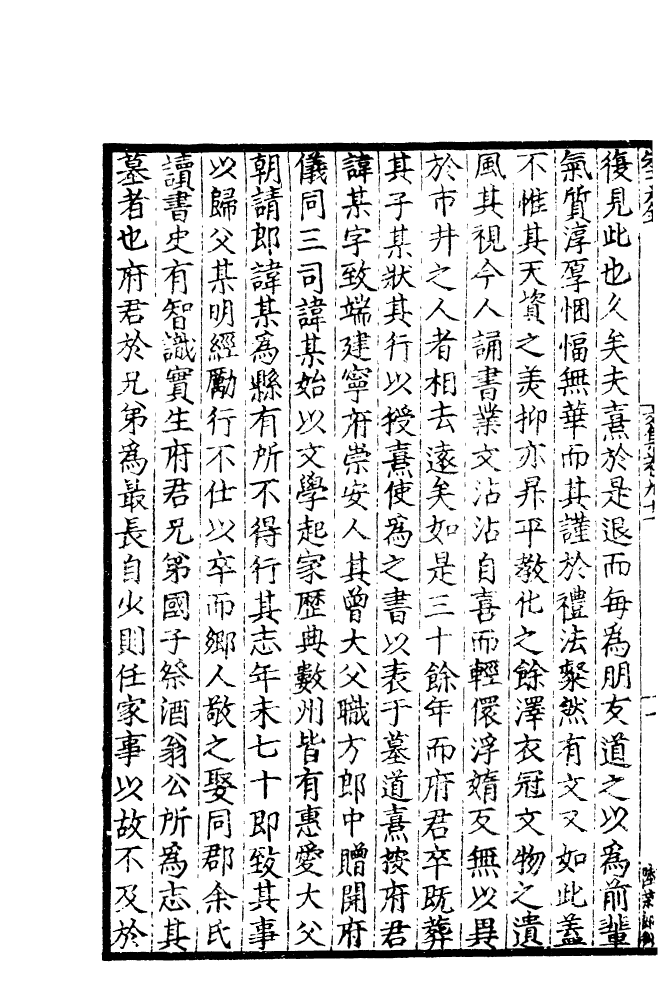 文集卷九十一
一
復見此也久矣夫熹於是退而每為朋友道之以為前輩
氣質淳厚悃愊無華而其謹於禮法粲然有文又如此蓋
不惟其天資之美抑亦昇平教化之餘澤衣冠文物之遺
風其視今人誦書業文沾沾自喜而輕儇浮媠叐無以異
於市井之人者相去遠矣如是三十餘年而府君卒既葬
其子某狀其行以授熹使為之書以表于墓道熹按府君
諱某字致端建寧府崇安人其曾大父職方郎中贈開府
儀同三司諱某始以文學起家歷典數州皆有惠愛大父
朝請郎諱某為縣有所不得行其志年未七十即致其事
以歸父某明經勵行不仕以卒而鄉人敬之娶同郡余氏
讀書史有智識實生府君兄弟國子祭酒翁公所為志其
墓者也府君於兄弟為最長自少則任家事以故不及於